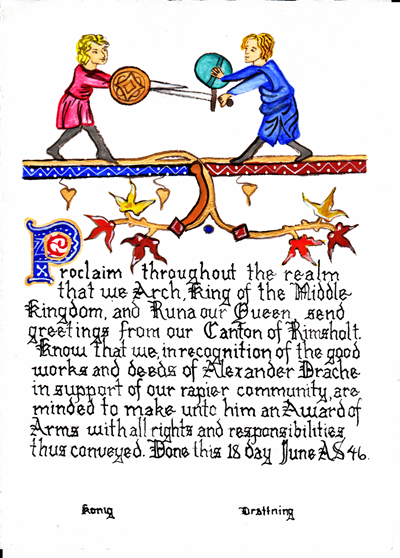 Proclaim throughout the realm
that we Arch, King of the Middle
Kingdom, and Runa our Queen, send
greetings from our Canton of Rimsholt.
Know that we, in recognition of the good
works and deeds of Alexander Drache
in support of our rapier community, are
minded to make unto him an Award of
Arms with all rights and responsibilities
thus conveyed. Done this 18 day June AS 46.
Konig Drottning